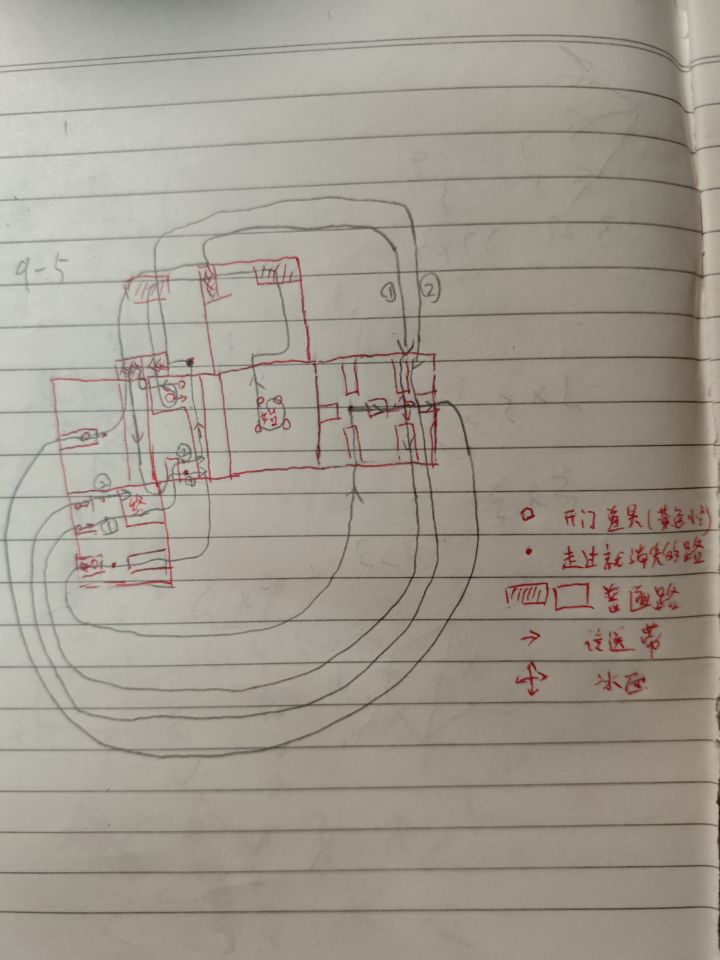 9-5
① ②
②
①
②
开门道具(黄色的)
走过就消失的路
普通路
传送带
冰面